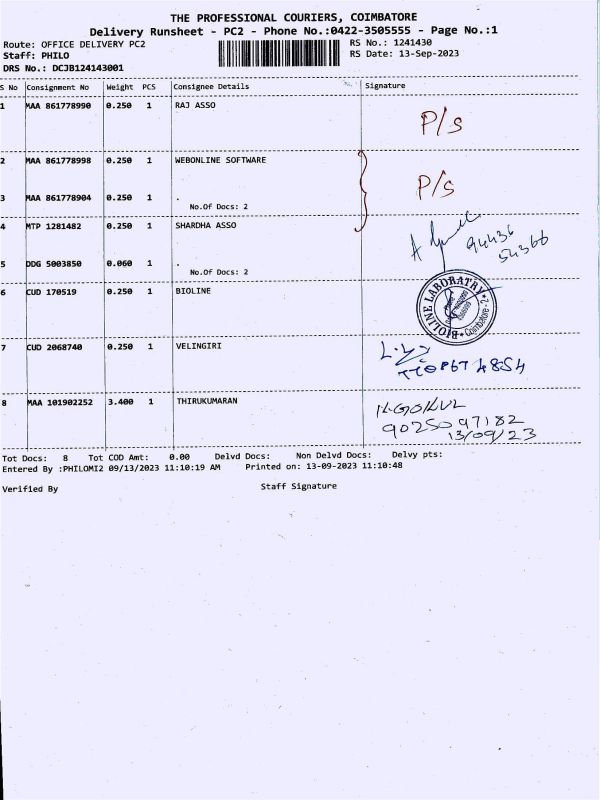 THE PROFESSIONAL COURIERS, COIMBATORE
Delivery Runsheet - PC2 - Phone No.:0422-3505555 - Page No.:1
Route: OFFICE DELIVERY PC2 RS No.: 1241430
Staff: PHILO RS Date: 13-Sep-2023
DRS No.: DCJB124143001
S No Consignment No Weight PCS Consignee Details Signature
1 MAA 861778990 0.250 1 RAJ ASSO
P/s
2 MAA 861778998 0.250 1 WEBONLINE SOFTWARE
P/s
3 MAA 861778904 0.250 1 .
No.Of Docs: 2
4 MTP 1281482 0.250 1 SHARDHA ASSO
94436
54366
5 DDG 5003850 0.060 1 .
No.Of Docs: 2
6 CUD 170519 0.250 1 BIOLINE
BIOLINE LABORATRY Coimbatore-2
7 CUD 2068740 0.250 1 VELINGIRI
8 MAA 101902252 3.400 1 THIRUKUMARAN
K-GOKUL
9025097182
13/09/23
Tot Docs: 8 Tot COD Amt: 0.00 Delvd Docs: Non Delvd Docs: Delvy pts:
Entered By :PHILOMI2 09/13/2023 11:10:19 AM Printed on: 13-09-2023 11:10:48
Verified By Staff Signature